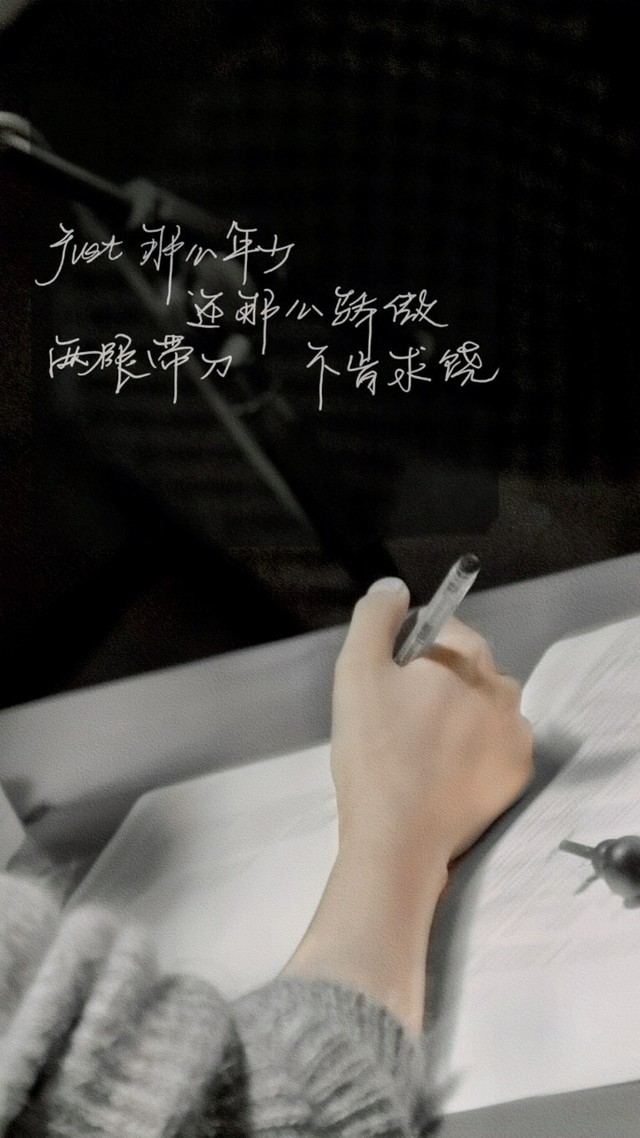 Just 那么年少
还那么骄傲
两眼带刀 不肯求饶